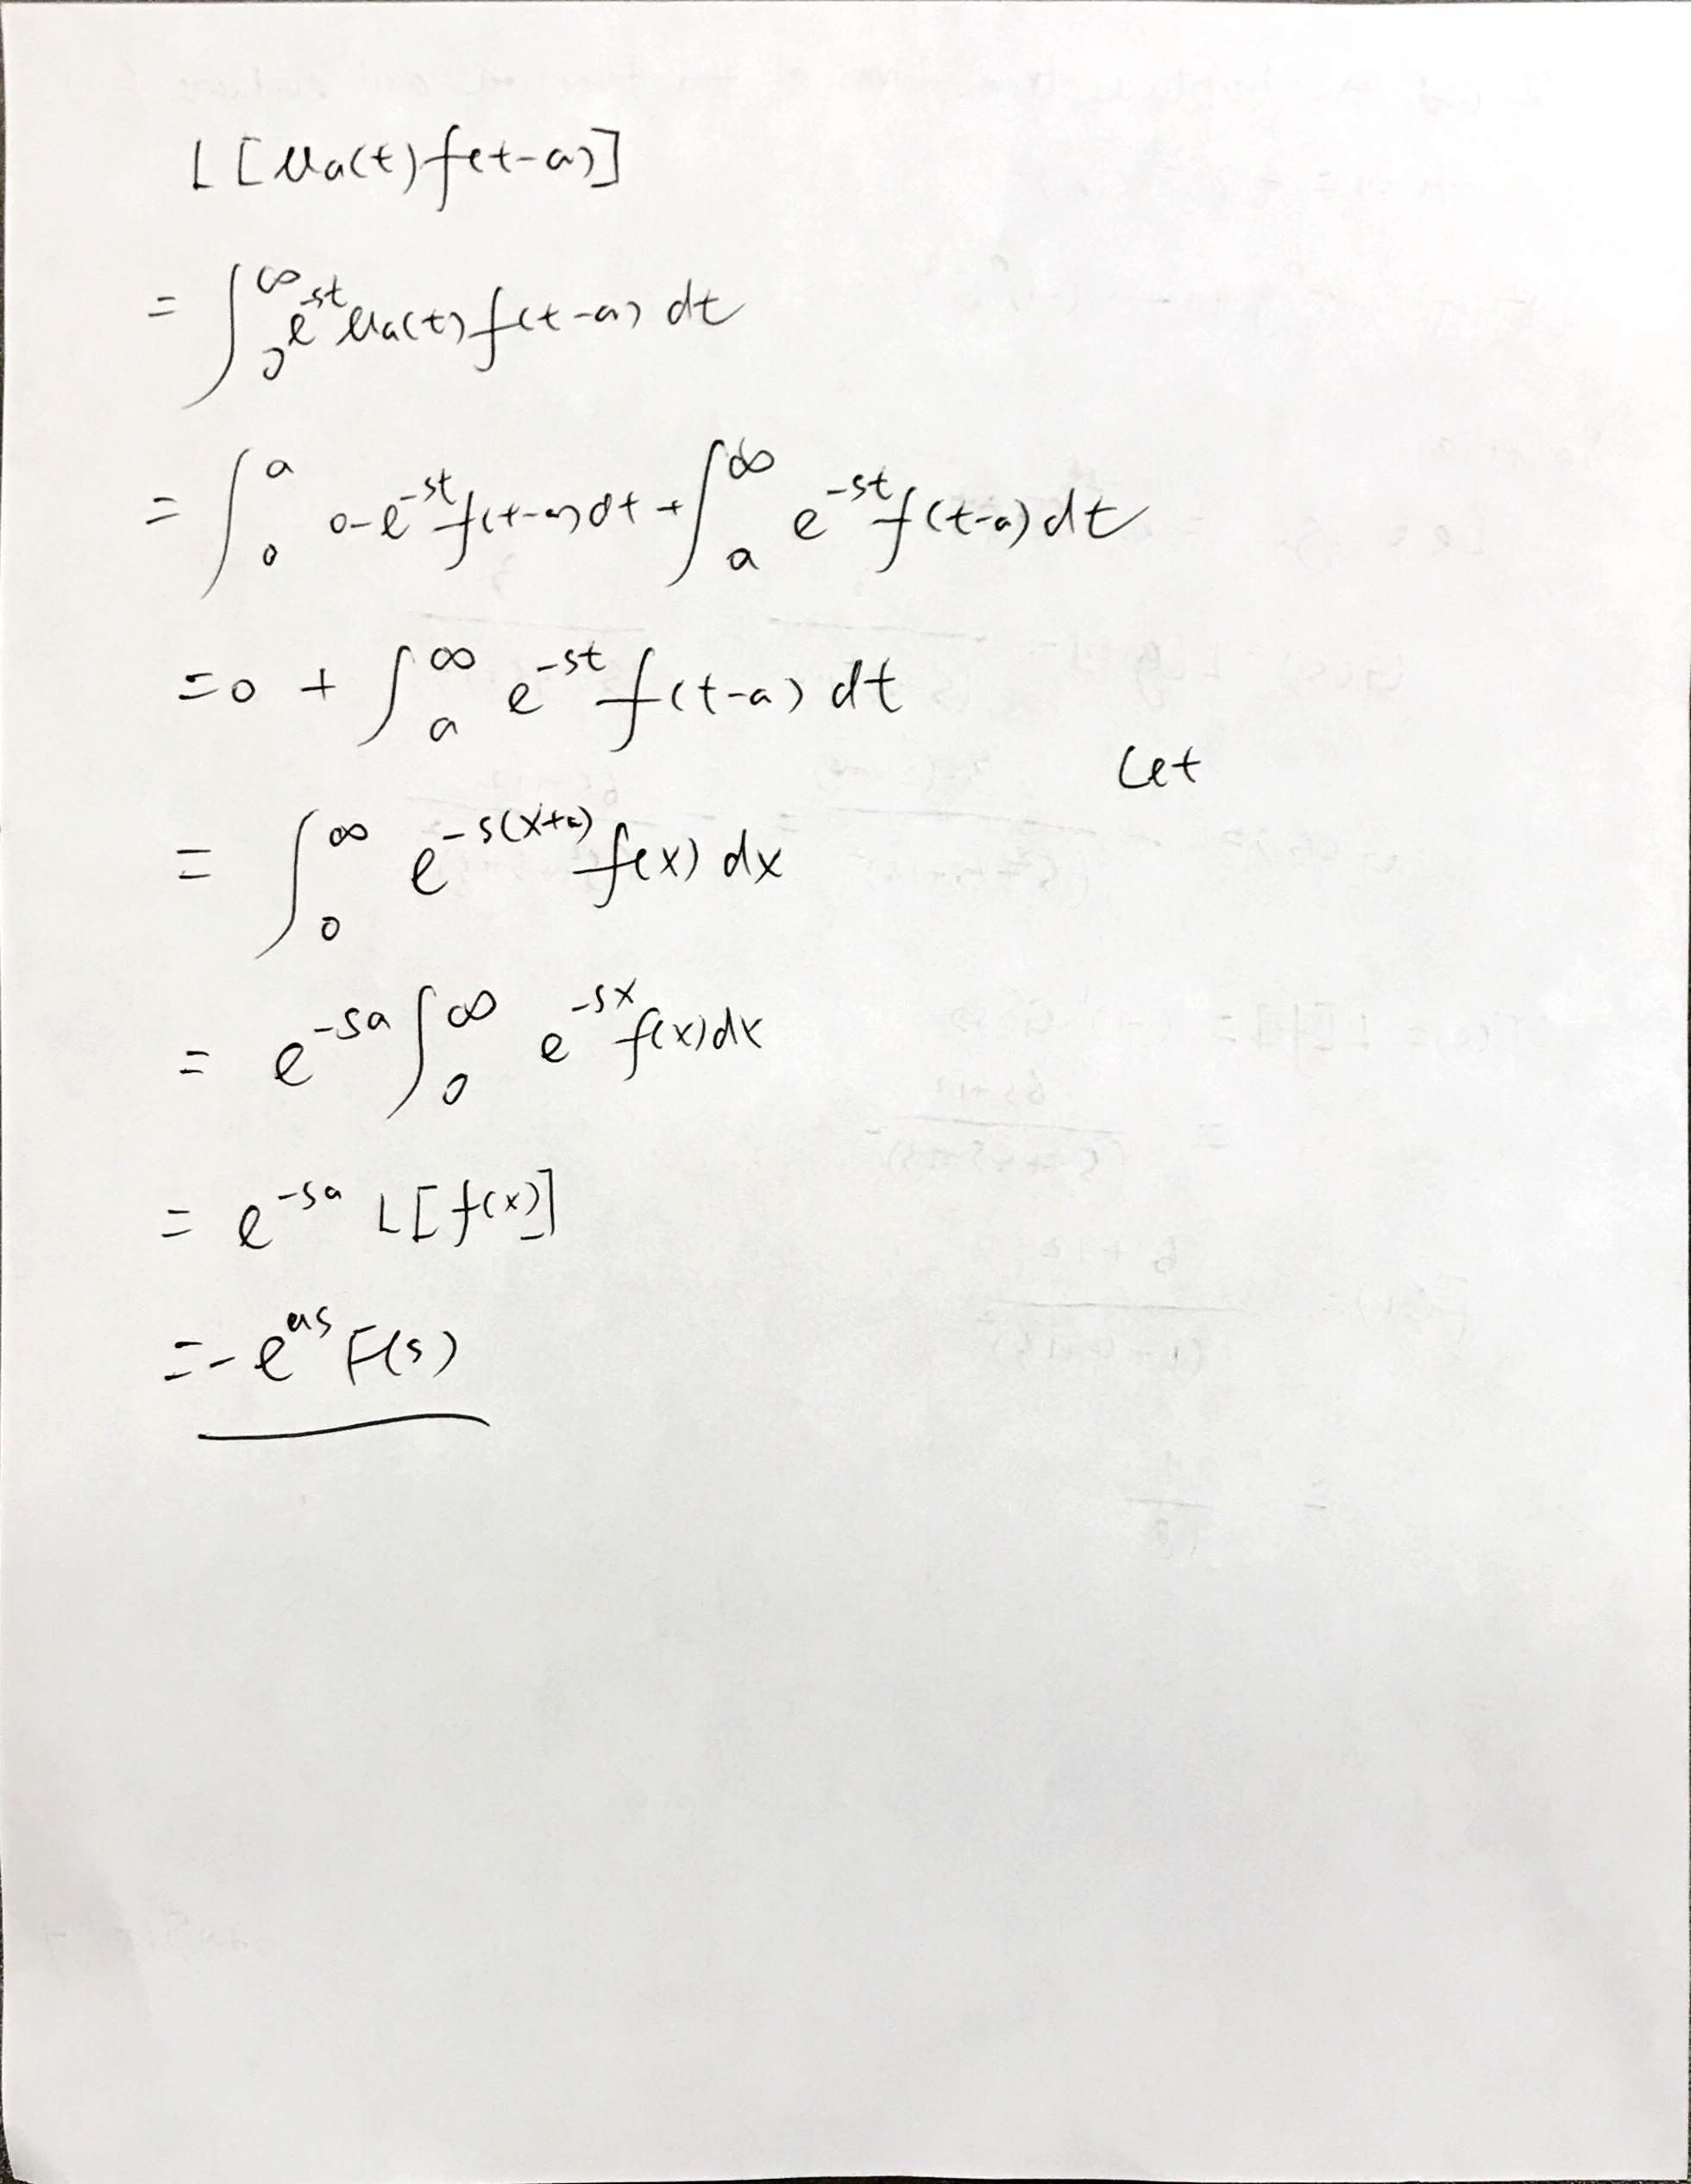 L[u_a(t)f(t-a)]
= ∫_0^∞ e^{-st} u_a(t) f(t-a) dt
= ∫_0^a 0-e^{-st} f(t-a)dt + ∫_a^∞ e^{-st} f(t-a) dt
=0 + ∫_a^∞ e^{-st} f(t-a) dt
Let
= ∫_0^∞ e^{-s(x+a)} f(x) dx
= e^{-sa} ∫_0^∞ e^{-sx} f(x)dx
= e^{-sa} L[f(x)]
=-e^{as} F(s)